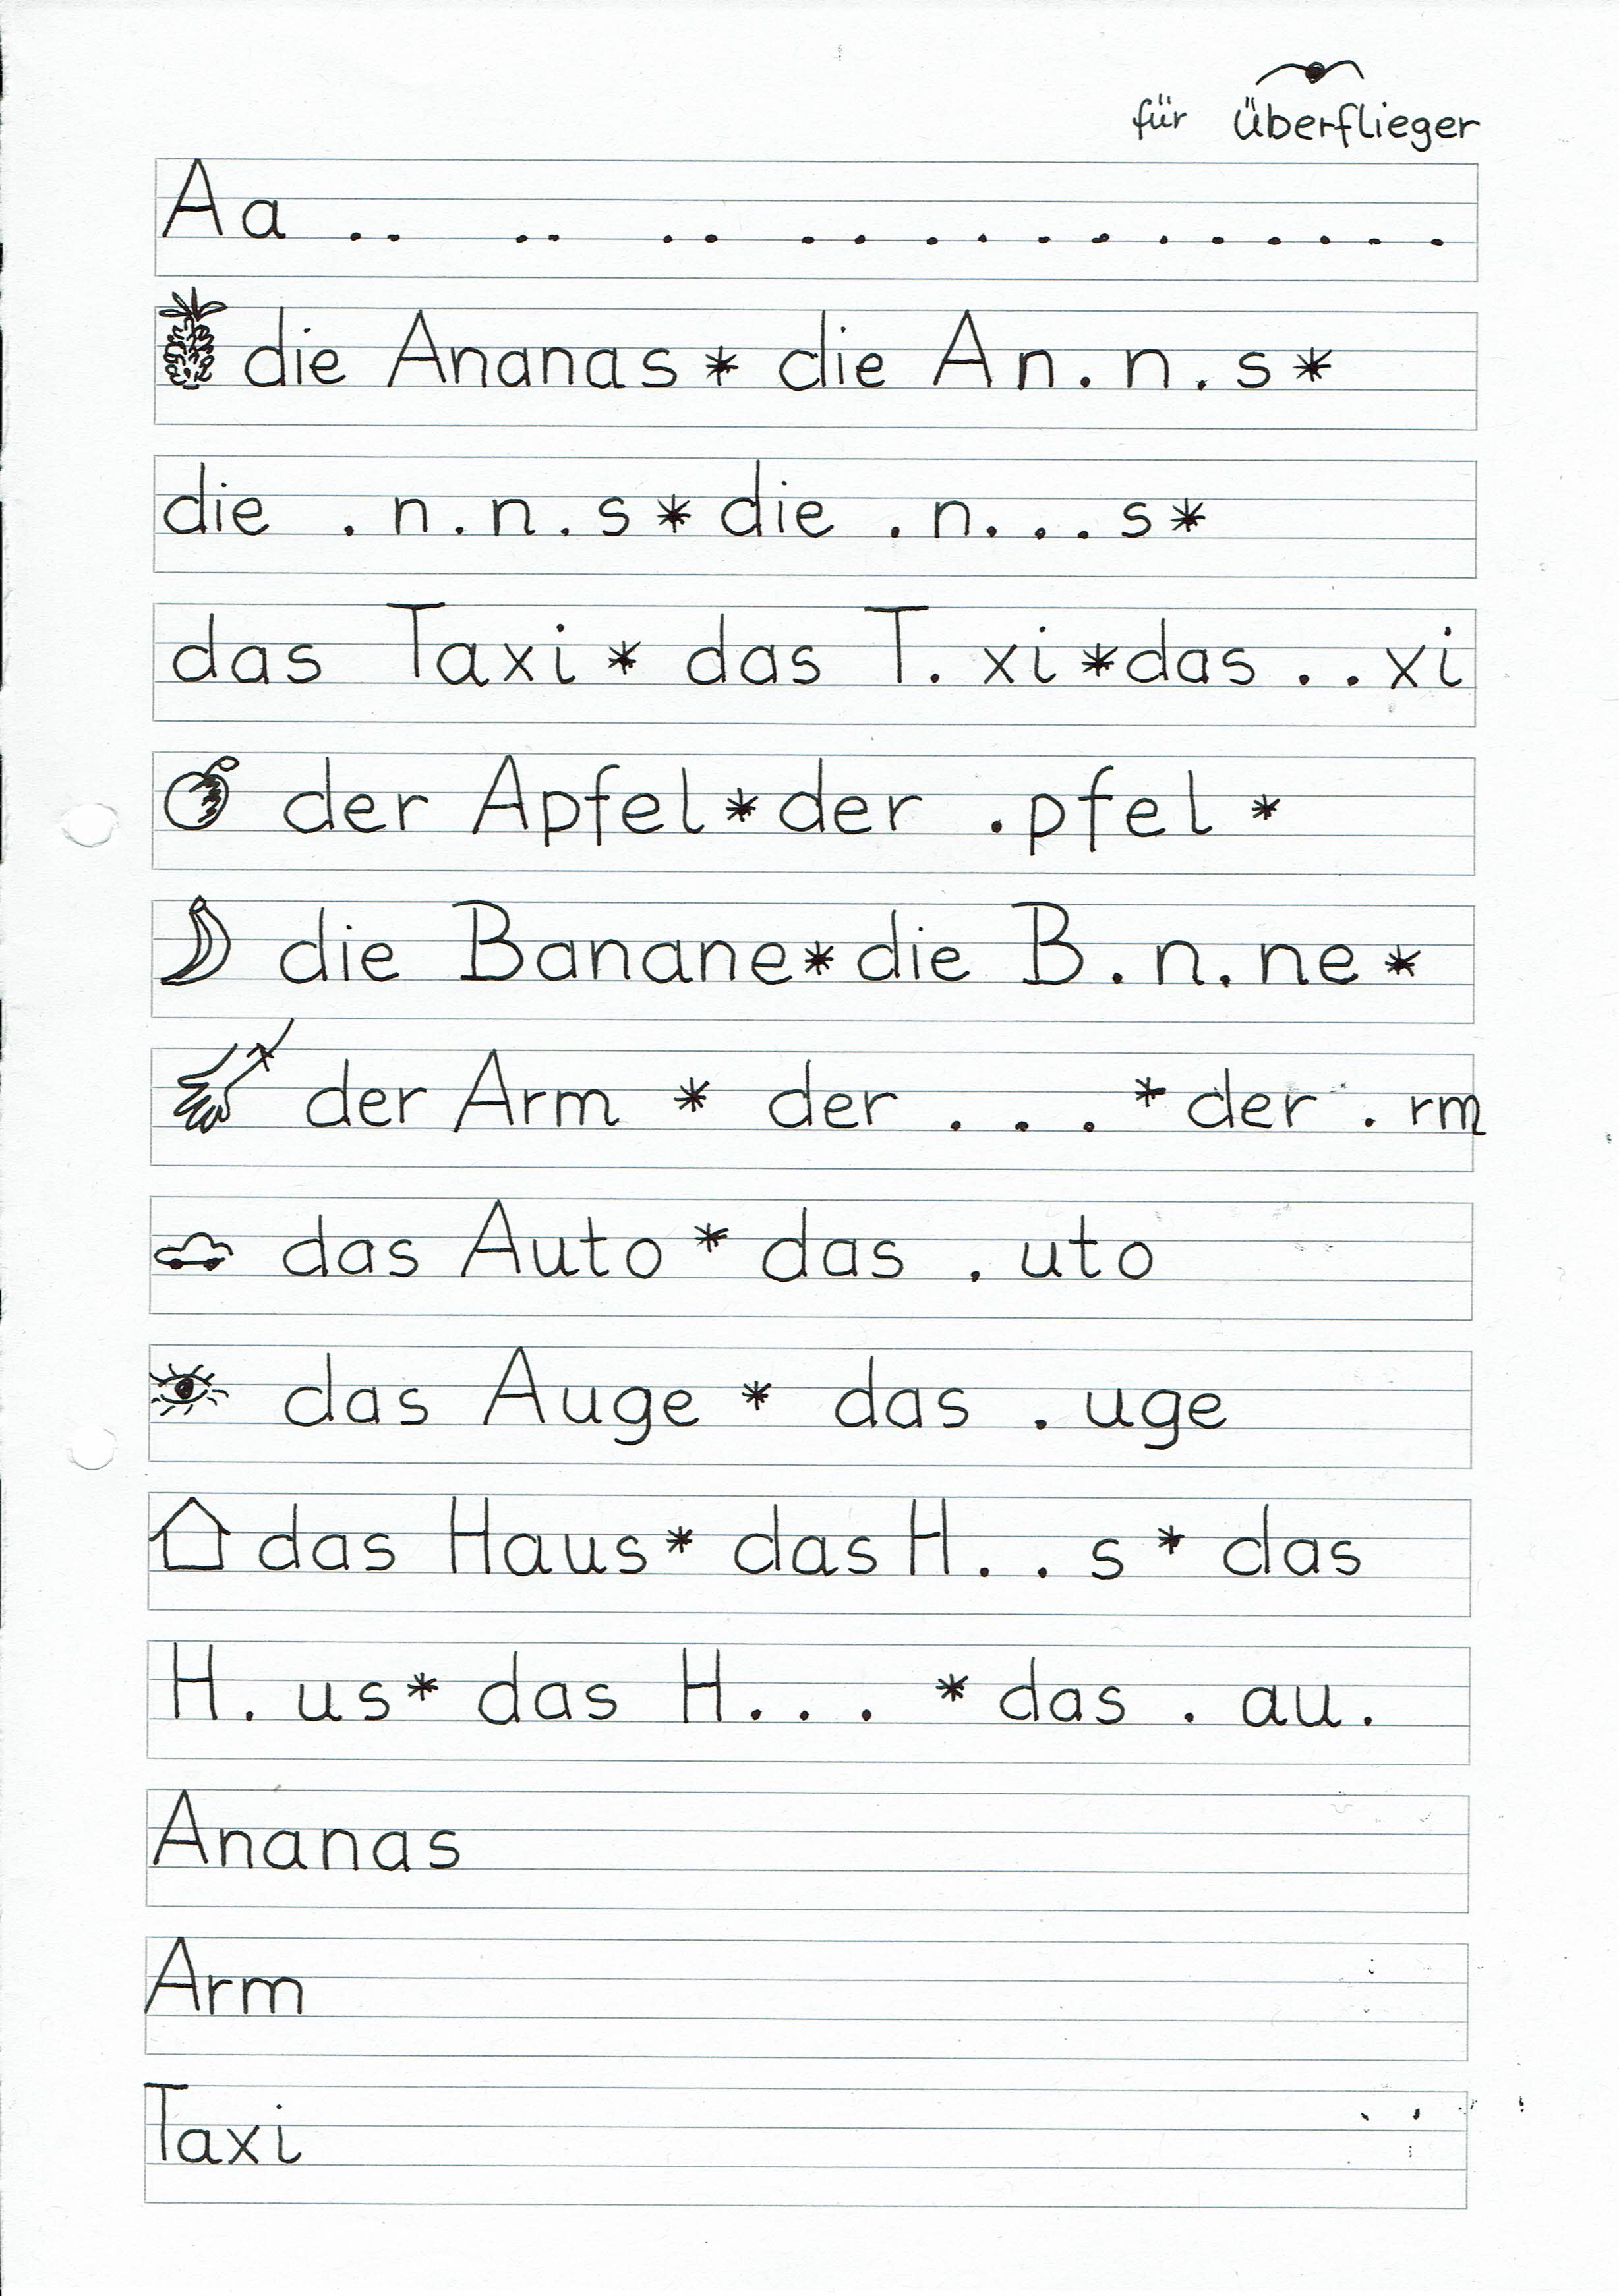 für Überflieger
Aa .. .. .. .. . . . . . . . . . .
die Ananas * die An.n.s *
die .n.n.s * die .n...s *
das Taxi * das T.xi * das ..xi
der Apfel * der .pfel *
die Banane * die B.n.ne *
der Arm * der ... * der .rm
das Auto * das .uto
das Auge * das .uge
das Haus * das H..s * das
H.us * das H... * das .au.
Ananas
Arm
Taxi